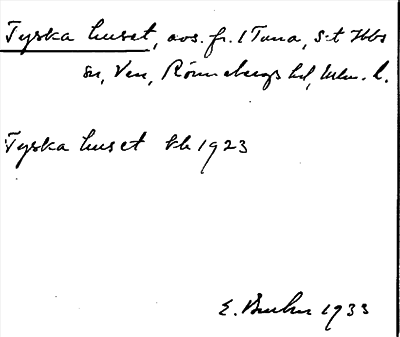 Tyska huset, avs. fr. 1 Tuna, S:t Ibbs
sn, Ven, Rönnebergs hd, Mlm. l.
Tyska huset Ek 1923
E. 1933